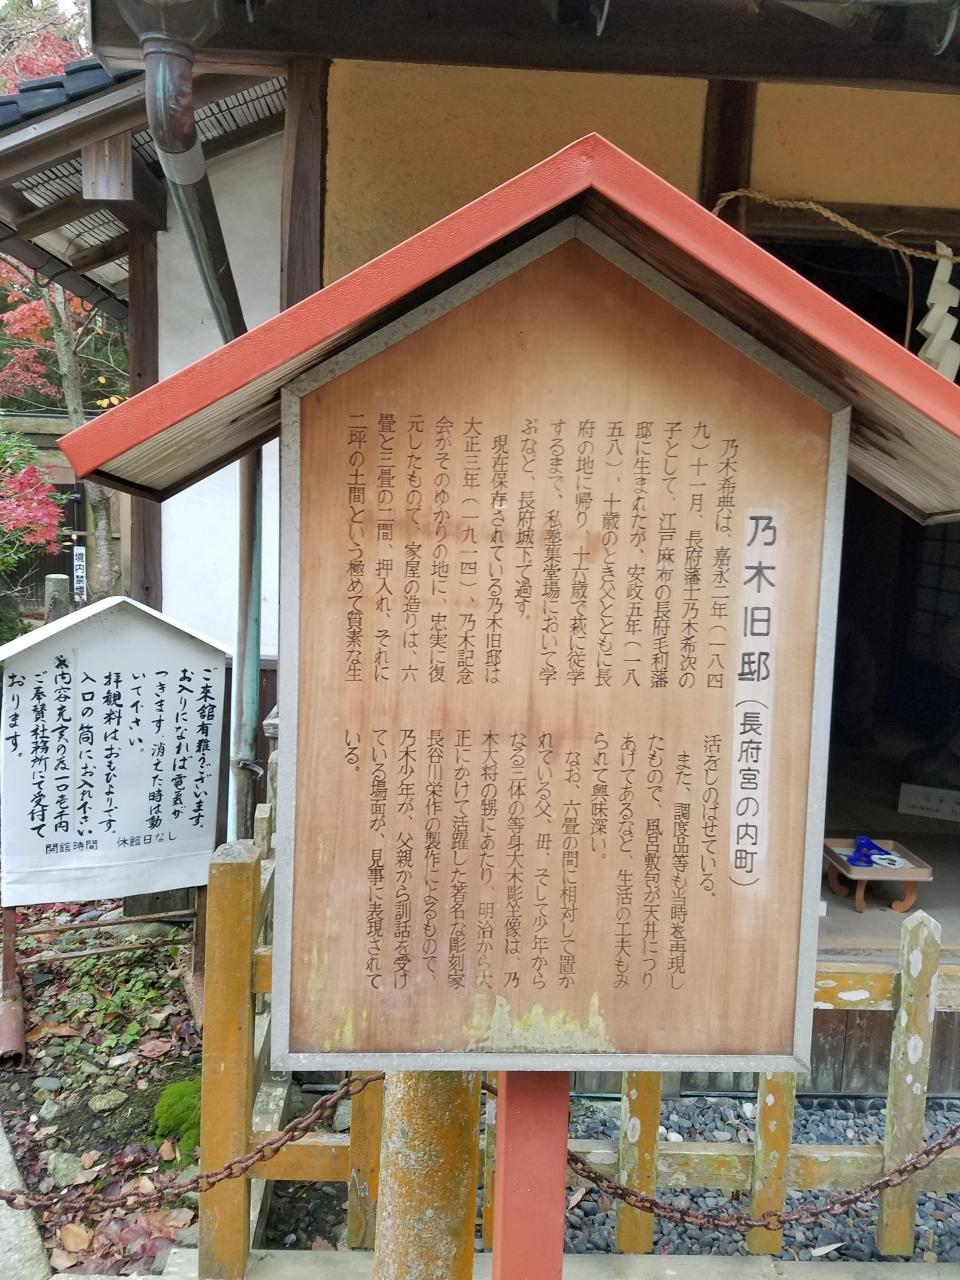 乃木旧邸（長府宮の内町）
乃木希典は、嘉永二年（一八四
九）十一月、長府藩士乃木希次の
子として、江戸麻布の長府毛利藩
邸に生まれたが、安政五年（一八
五八）、十歳のとき父とともに長
府の地に帰り、十六歳で萩に従学
するまで、私塾集童場において学
ぶなど、長府城下で過す。
現在保存されている乃木旧邸は
大正三年（一九一四）、乃木記念
会がそのゆかりの地に、忠実に復
元したもので、家屋の造りは、六
畳と三畳の二間、押入れ、それに
二坪の土間という極めて質素な生
活をしのばせている。
また、調度品等も当時を再現し
たもので、風呂敷包が天井につり
あげてあるなど、生活の工夫もみ
られて興味深い。
なお、六畳の間に相対して置か
れている父、母、そして少年から
なる三体の等身大木彫坐像は、乃
木大将の甥にあたり、明治から大
正にかけて活躍した著名な彫刻家
長谷川栄作の製作によるもので、
乃木少年が、父親から訓話を受け
ている場面が、見事に表現されて
いる。
ご来館有難うございます。
お入りになれば電気が
つきます、消えた時は動
いて下さい。
拝観料はおもひよりです。
入口の筒にお入れ下さい
※内容充実の為一口壱千円
ご奉賛社務所にて受付て
おります。
開館時間　休館日なし
境内禁煙